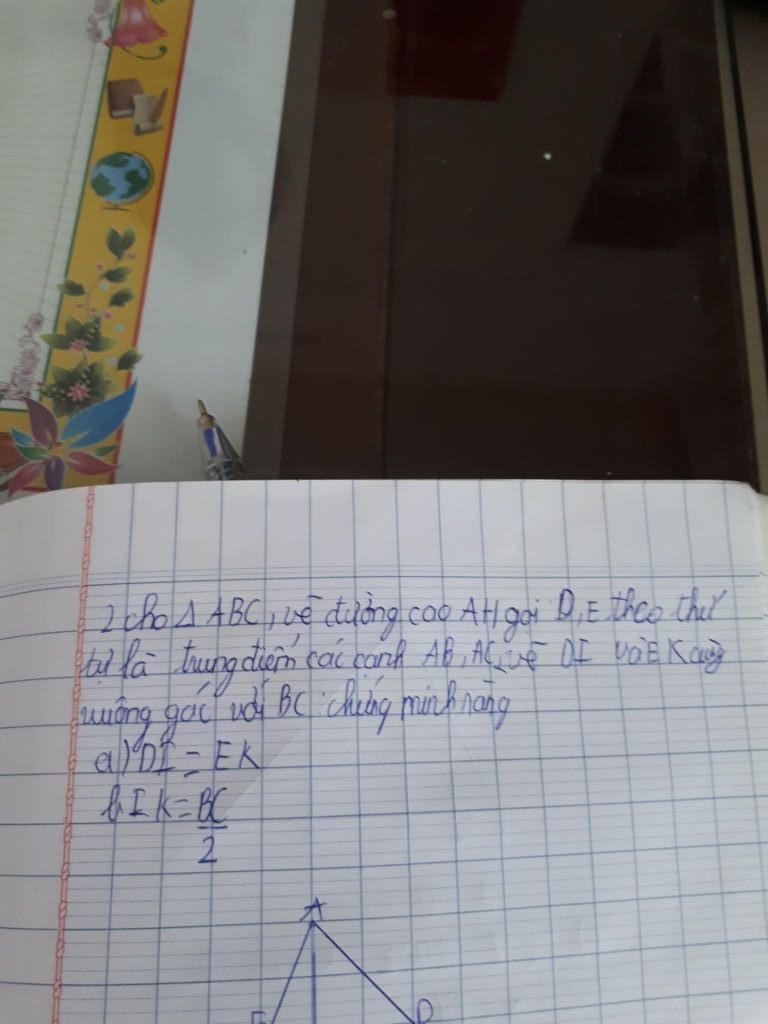 2 cho Δ ABC, vẽ đường cao AH gọi D, E theo thứ
tự là trung điểm các cạnh AB, AC, vẽ DI và EK cùng
vuông góc với BC : chứng minh rằng
a) DI = EK
b IK = BC
2
A
E
D